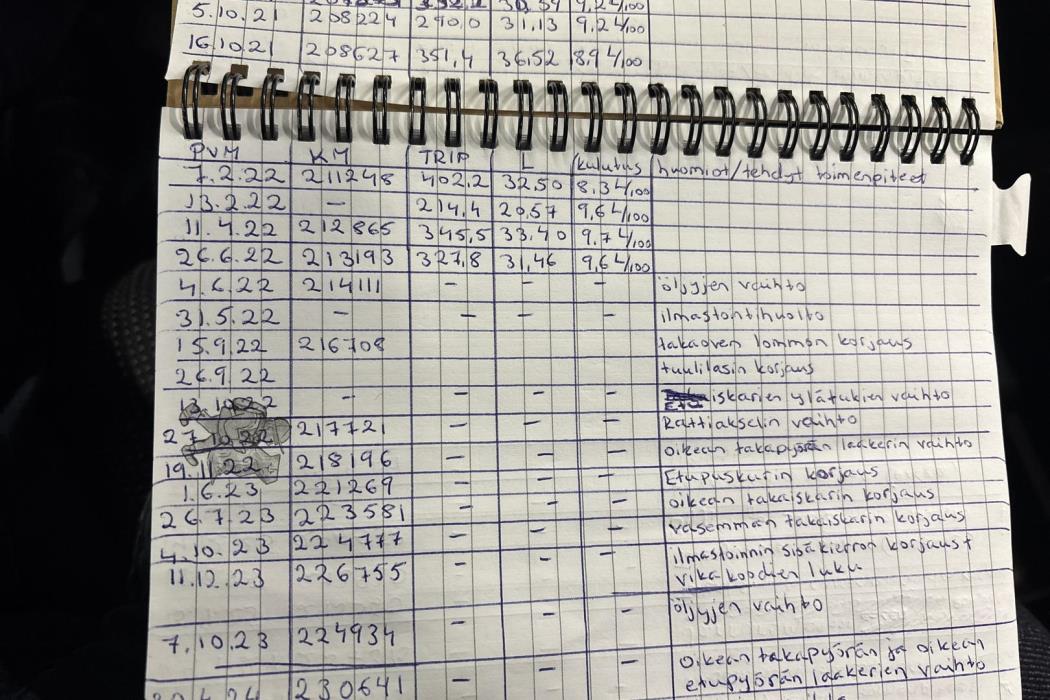 5.10.21 208224 290,0 31,13 9,2 L/100
16.10.21 208627 351,4 36,52 8,9 L/100
PVM KM TRIP L kulutus huomiot/tehdyt toimenpiteet
7.2.22 211248 402,2 32,50 8,3 L/100
13.2.22 — 214,4 20,57 9,6 L/100
11.4.22 212865 345,5 33,40 9,7 L/100
26.6.22 213193 327,8 31,46 9,6 L/100
4.6.22 214111 — — — öljyjen vaihto
31.5.22 — — — — ilmastontihuolto
15.9.22 216708 takaoven lommon korjaus
26.9.22 tuulilasin korjaus
13.10.22 — — — — Etu iskarien ylätukien vaihto
27.10.22 217721 — — — Rattiakselin vaihto
19.11.22 218196 — — — oikean takapyörän laakerin vaihto
1.6.23 221269 — — — Etupuskurin korjaus
26.7.23 223581 — — — oikean takaiskarin korjaus
4.10.23 224777 — — — vasemman takaiskarin korjaus
11.12.23 226755 — — — ilmastoinnin sisäkierron korjaus +
vikakoodien luku
7.10.23 224934 — — — öljyjen vaihto
230641 — — — oikean takapyörän ja oikean
etupyörän laakerien vaihto